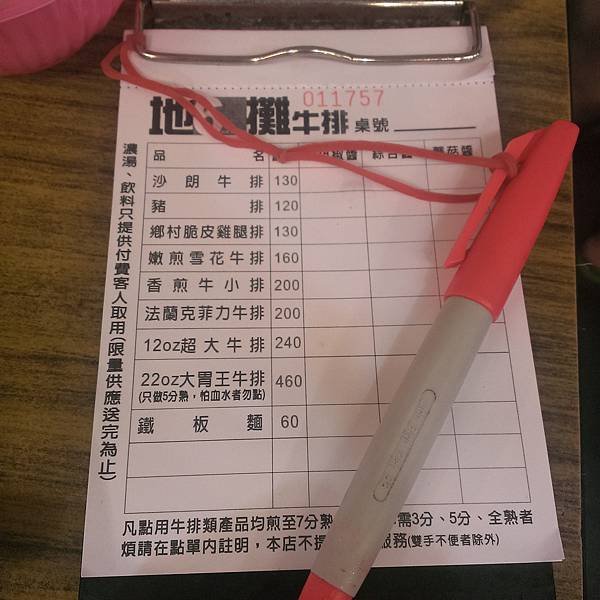 011757
地 攤牛排 桌號
品 名 椒醬 綜合醬 蘑菇醬
沙朗牛排 130
豬排 120
鄉村脆皮雞腿排 130
嫩煎雪花牛排 160
香煎牛小排 200
法蘭克菲力牛排 200
12oz超大牛排 240
22oz大胃王牛排 460
(只做5分熟，怕血水者勿點)
鐵板麵 60
凡點用牛排類產品均煎至7分熟 需3分、5分、全熟者
煩請在點單內註明，本店不提 服務(雙手不便者除外)
濃湯、飲料只提供付費客人取用(限量供應送完為止)